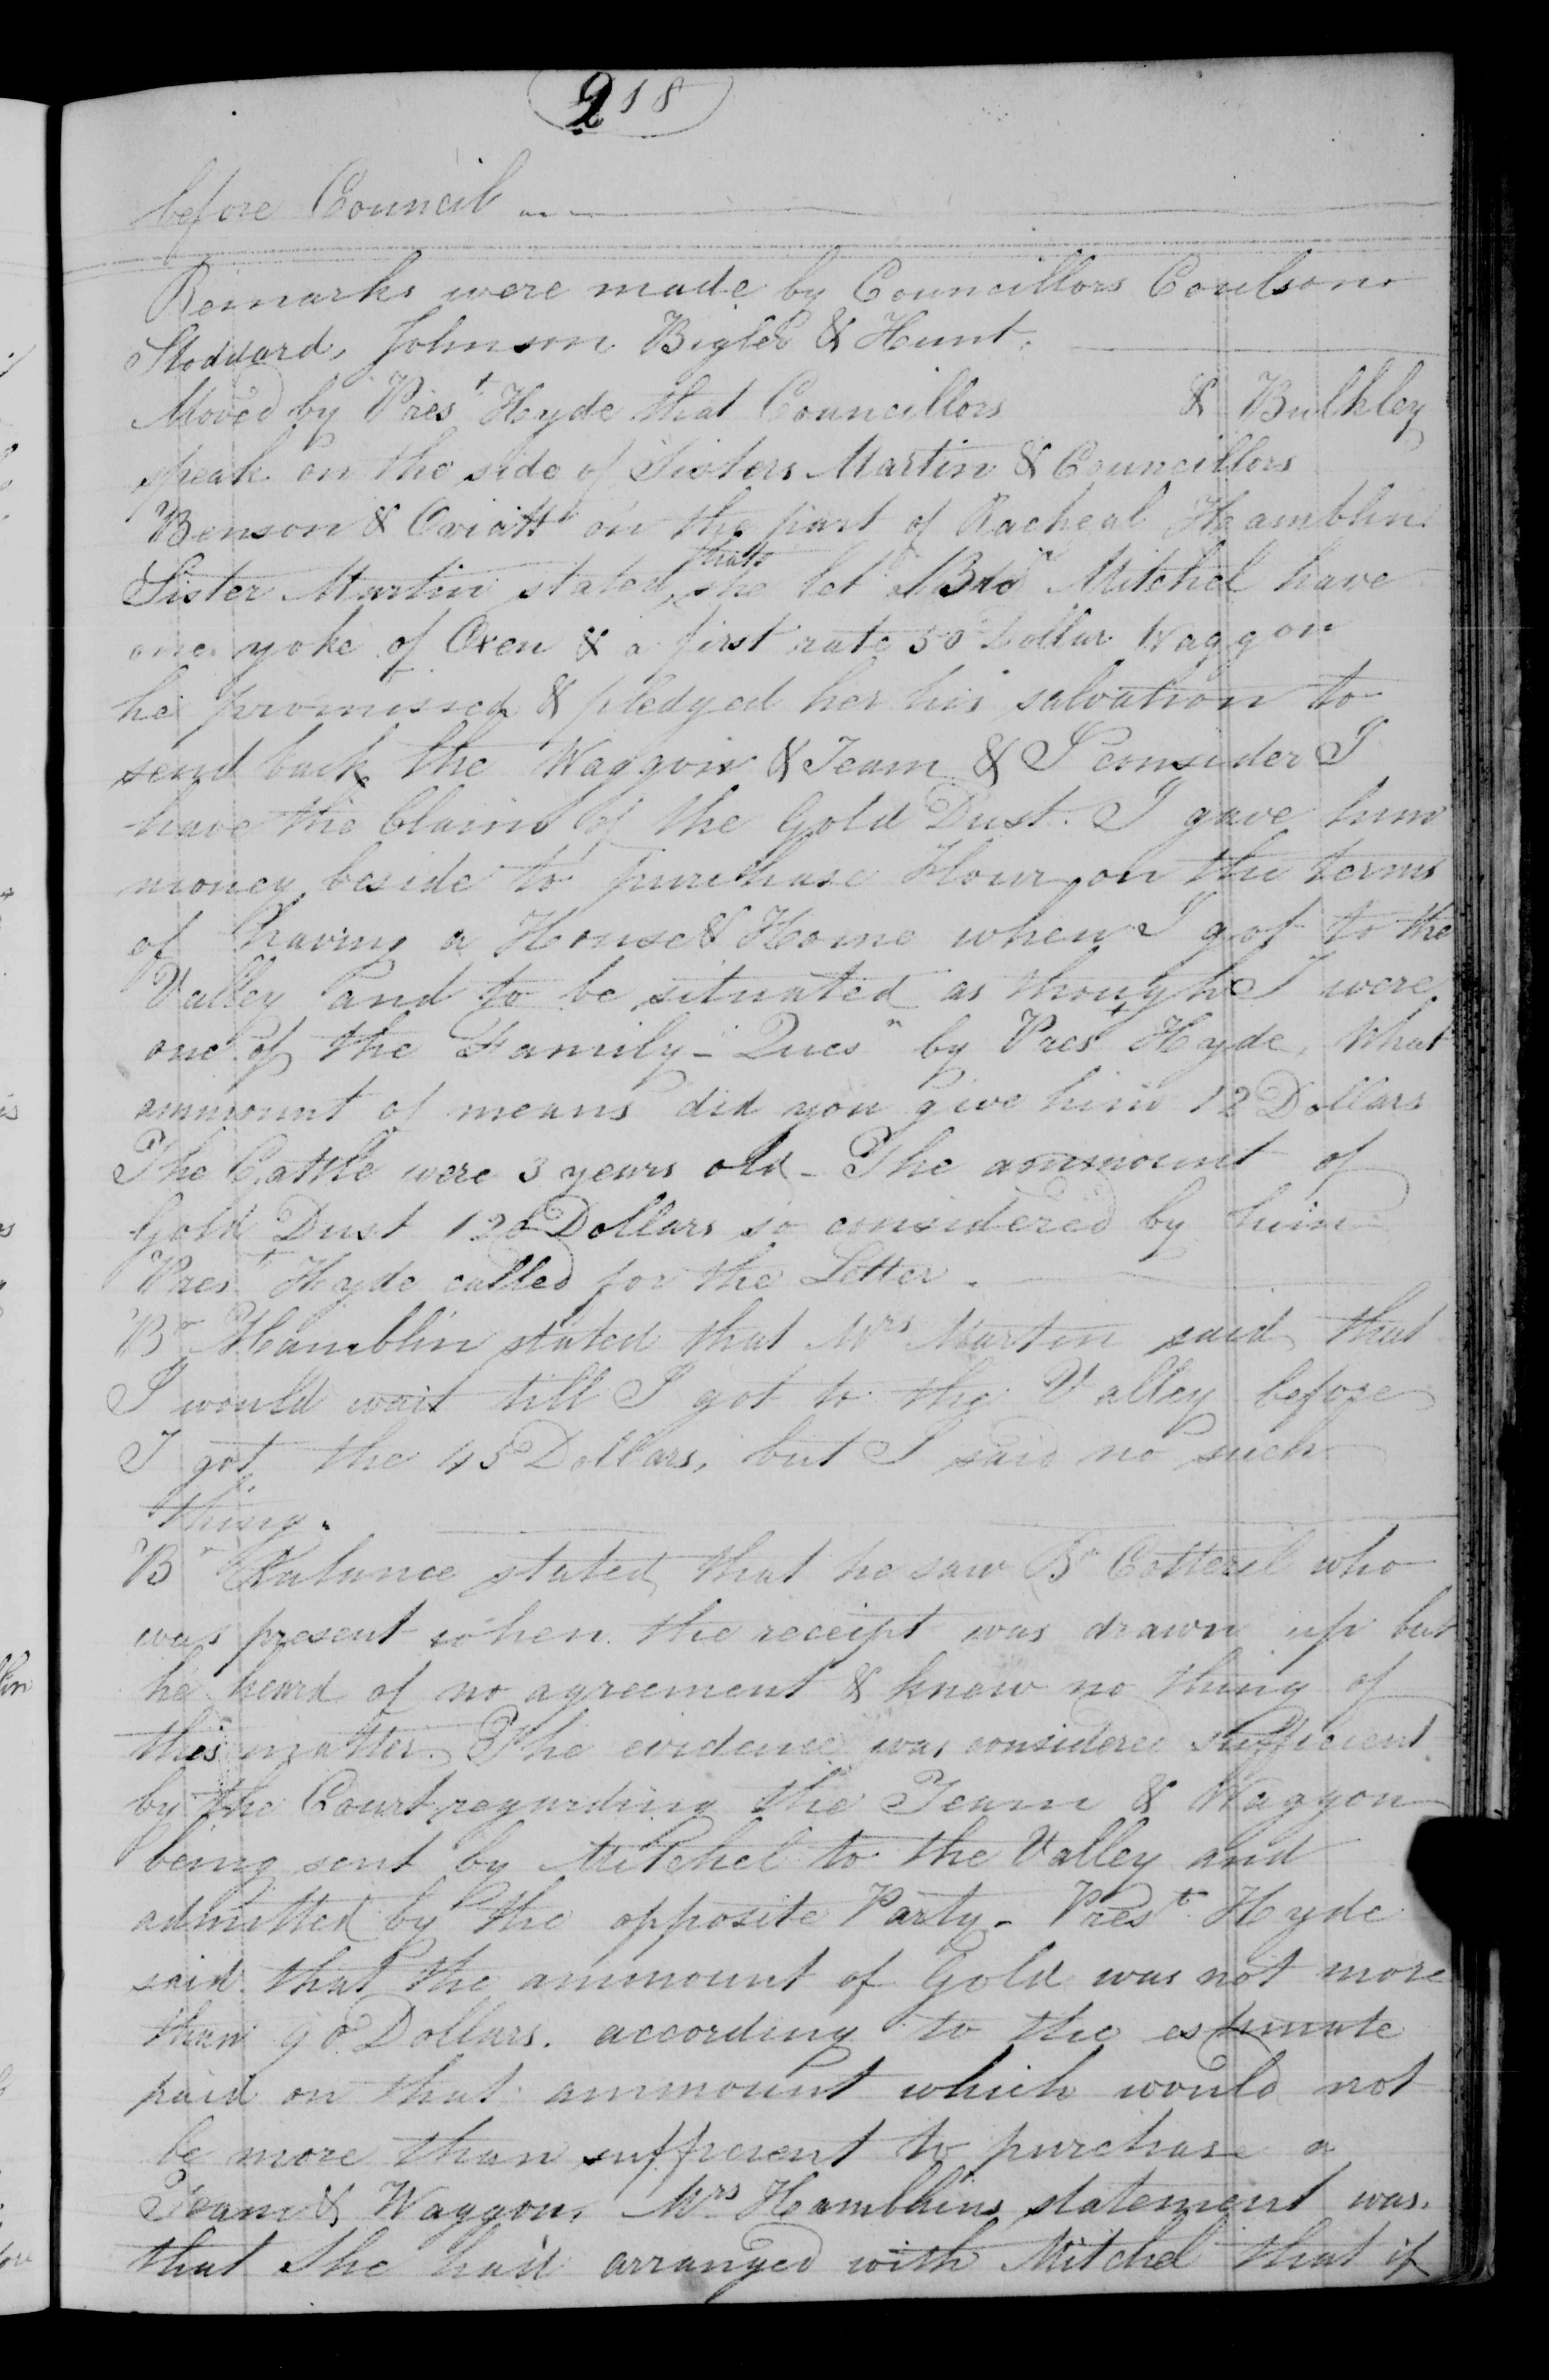 218
before Council
Remarks were made by Councillors Coulson
Stoddard, Johnson Bigler & Hunt.
Moved by Prest Hyde that Councillors & Bulkley
speak on the side of Sisters Martin & Councillors
Benson & Oviatt on the part of Racheal Hamblin
Sister Martin stated that she let Bro Mitchel have
one yoke of Oxen & a first rate 50 Dollar Waggon
he promised & pledged her his salvation to
send back the Waggon & Team & I consider I
have the Claim of the Gold Dust. I gave him
money beside to purchase Flour, on the terms
of having a House & Home when I got to the
Valley and to be situated as though I were
one of the Family - Quesn by Prest Hyde, What
ammount of means did you give him 12 Dollars
The Cattle were 3 years old - The ammount of
Gold Dust 120 Dollars so considered by him
Prest Hyde called for the Letter.
Br Hamblin stated that Mrs Martin said that
I would wait till I got to the Valley before
I got the 45 Dollars, but I said no such
thing.
Br stated, that he saw Br Cotteril who
was present when the receipt was drawn up but
he heard of no agreement & knew no thing of
this matter. The evidence was considered sufficient
by the Court regarding the Team & Waggon
being sent by Mitchel to the Valley and
admitted by the opposite Party - Prest Hyde
said that the ammount of Gold was not more
than 90 Dollars. according to the estimate
paid on that ammount which would not
be more than sufficient to purchase a
Team & Waggon, Mrs Hamblins statement was.
that She had arranged with Mitchel that if